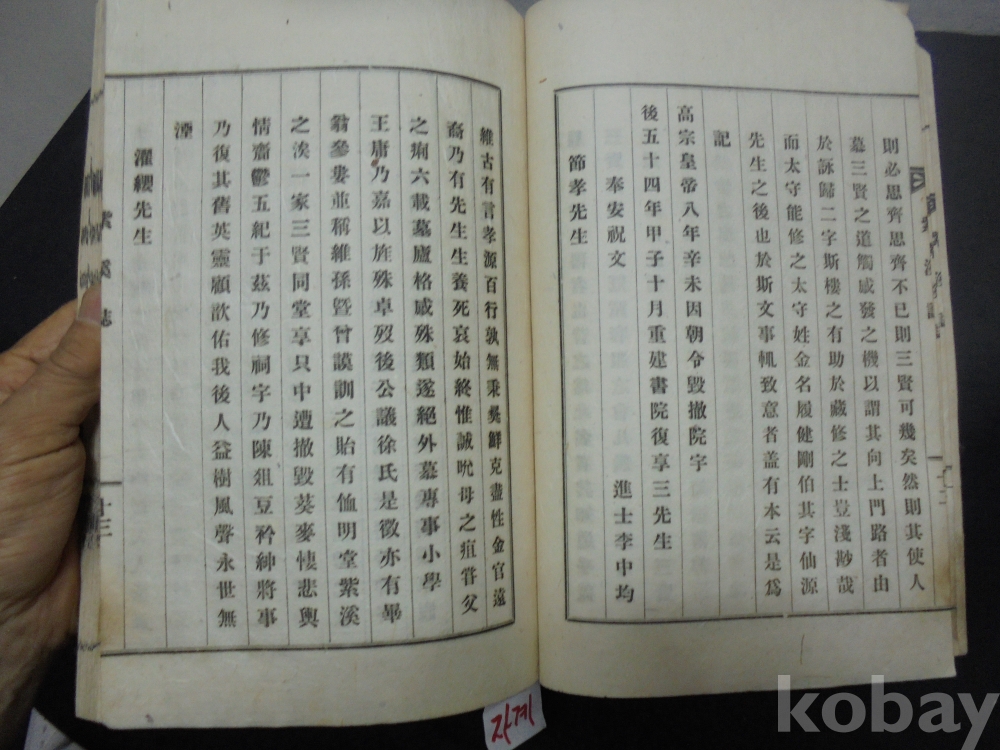 則必思齊思齊不已則三賢可幾矣然則其使人
墓三賢之道觸感發之機以謂其向上門路者由
於詠歸二字斯樓之有助於藏修之士豈淺尠哉
而太守能修之太守姓金名履健剛伯其字仙源
先生之後也於斯文事輒致意者盖有本云是爲
記
高宗皇帝八年辛未因朝令毀撤院宇
後五十四年甲子十月重建書院復享三先生
奉安祝文 進士李中均
節孝先生
維古有言孝源百行孰無秉彛鮮克盡性金官遠
裔乃有先生生養死哀始終惟誠吮母之疽甞父
之痢六載墓廬格感殊類遂絕外慕專事小學
王庸乃嘉以旌殊卓歿後公議徐氏是徵亦有畢
翁參婁並稱維孫曁曾謨訓之貽有恤明堂紫溪
之涘一家三賢同堂享只中遭撤毀葵麥悽悲輿
情齎鬱五紀于茲乃修祠宇乃陳俎豆衿紳將事
乃復其舊英靈顧歆佑我後人益樹風聲永世無
湮
濯纓先生
誌
十三
자계
kobay